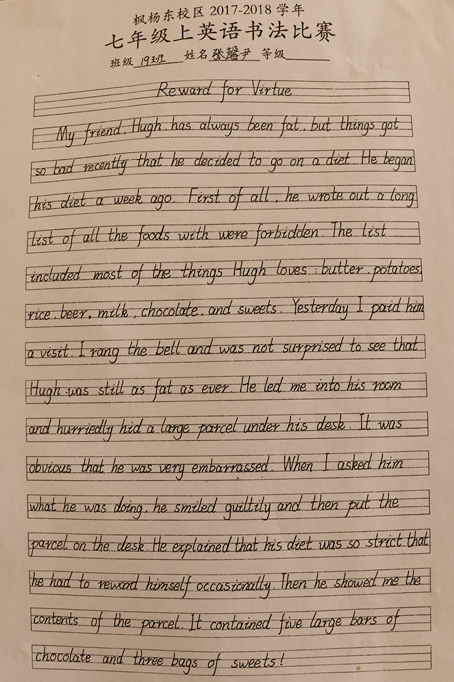 枫杨东校区 2017-2018 学年
七年级上英语书法比赛
班级 19班 姓名 张馨尹 等级
Reward for Virtue
My friend, Hugh, has always been fat, but things got
so bad recently that he decided to go on a diet. He began
his diet a week ago. First of all, he wrote out a long
list of all the foods with were forbidden. The list
included most of the things Hugh loves: butter, potatoes,
rice, beer, milk, chocolate, and sweets. Yesterday I paid him
a visit. I rang the bell and was not surprised to see that
Hugh was still as fat as ever. He led me into his room
and hurriedly hid a large parcel under his desk. It was
obvious that he was very embarrassed. When I asked him
what he was doing, he smiled guiltily and then put the
parcel on the desk. He explained that his diet was so strict that
he had to reward himself occasionally. Then he showed me the
contents of the parcel. It contained five large bars of
chocolate and three bags of sweets!